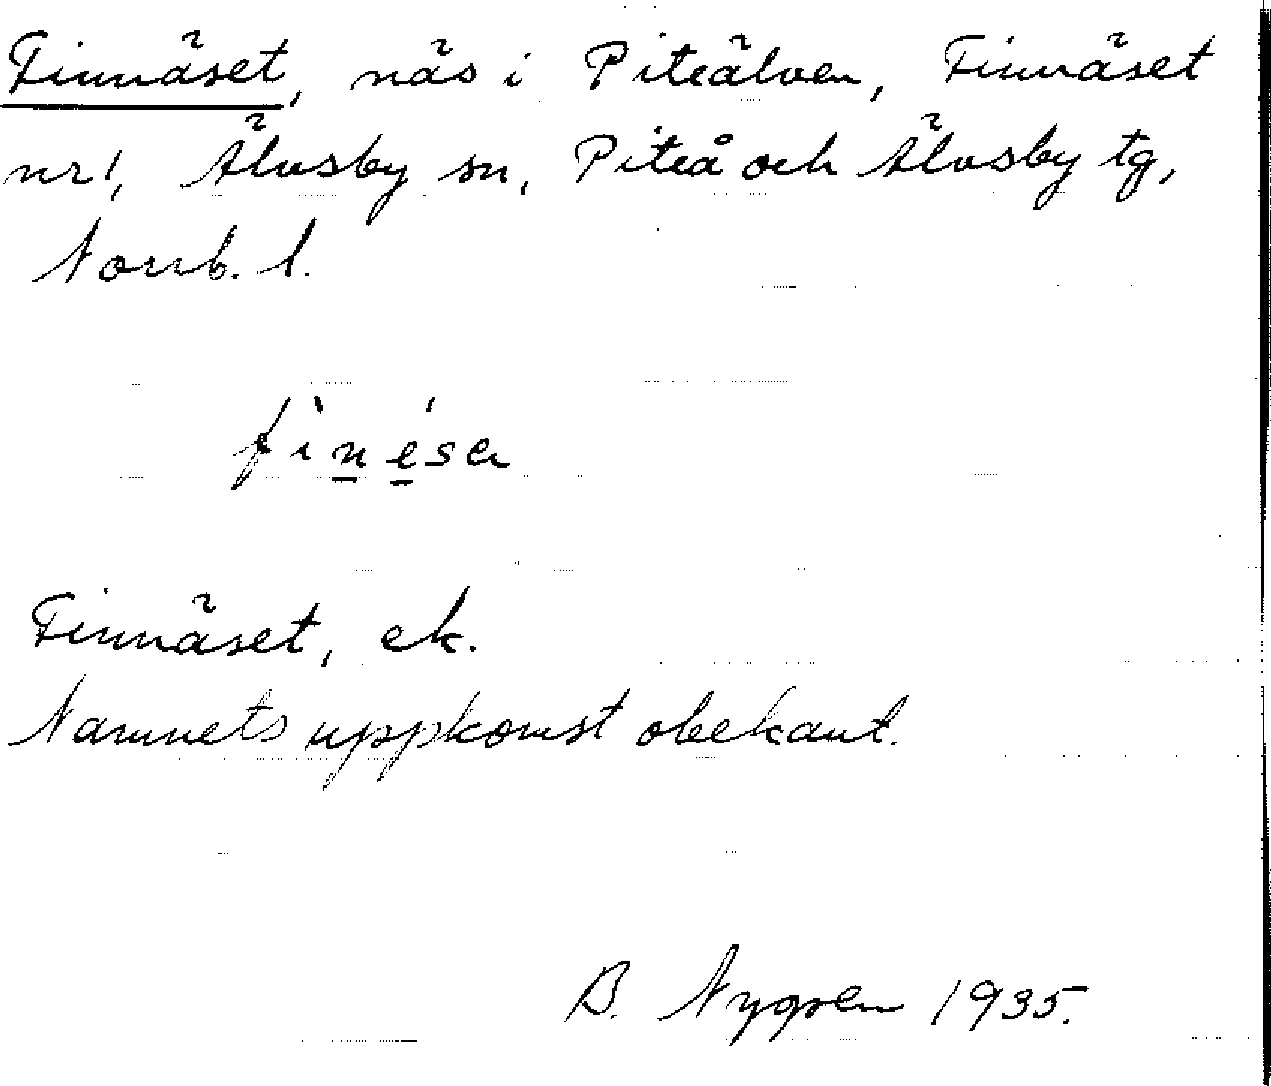 Finnäset, näs i Piteälven, Finnäset
nr 1, Älvsby sn, Piteå och Älvsby tg,
Norrb. l.
fìnésa
Finnäset, ek.
Namnets uppkomst obekant.
B. Nygren 1935.